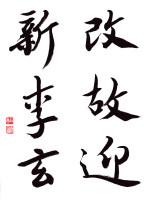 改故迎
新李玄